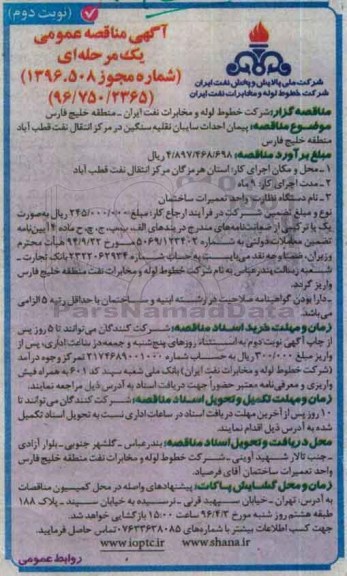 (نوبت دوم)
آگهی مناقصه عمومی
یک مرحله‌ای
(شماره مجوز ۱۳۹۶.۵۰۸)
(۹۶/۷۵۰/۲۳۶۵)
شرکت ملی پالایش و پخش نفت ایران
شرکت خطوط لوله و مخابرات نفت ایران
مناقصه گزار: شرکت خطوط لوله و مخابرات نفت ایران ـ منطقه خلیج فارس
موضوع مناقصه: پیمان احداث سایبان نقلیه سنگین در مرکز انتقال نفت قطب آباد
منطقه خلیج فارس
مبلغ برآورد مناقصه: ۴/۸۹۷/۴۶۸/۶۹۸ ریال
۱ـ محل و مکان اجرای کار: استان هرمزگان مرکز انتقال نفت قطب آباد
۲ـ مدت اجرای کار: ۹ ماه
۳ـ نام دستگاه نظارت: واحد تعمیرات ساختمان
نوع و مبلغ تضمین شرکت در فرآیند ارجاع کار: مبلغ ۲۴۵/۰۰۰/۰۰۰ ریال به‌صورت
یک یا ترکیبی از ضمانتنامه‌های مندرج در بندهای الف، ب، پ، ج، چ، ح ماده ۴ آیین‌نامه
تضمین معاملات دولتی به شماره ۵۰۶۹/۱۲۳۴۰۲ مورخ ۹۴/۹/۲۲ هیات محترم
وزیران، ضمنا وجه نقد می‌بایست به حساب شماره ۲۳۲۲۰۶۲۹۳۴ بانک تجارت ـ
شعبه رسالت بندرعباس به نام شرکت خطوط لوله و مخابرات نفت منطقه خلیج فارس
واریز گردد.
ـ دارا بودن گواهینامه صلاحیت در رشته ابنیه و ساختمان با حداقل رتبه ۵ الزامی
می‌باشد.
زمان و مهلت خرید اسناد مناقصه: شرکت کنندگان می‌توانند تا ۵ روز پس
از چاپ آگهی نوبت دوم به استثناء روزهای پنج‌شنبه و جمعه در ساعات اداری، پس از
واریز مبلغ ۳۰۰/۰۰۰ ریال به حساب شماره ۲۱۷۴۶۸۹۰۰۱۰۰۰ تمرکز وجوه درآمد
(شرکت خطوط لوله و مخابرات نفت ایران) بانک ملی شعبه سپند کد ۶۰۱ به همراه فیش
واریزی و معرفی‌نامه معتبر حضوراً جهت دریافت اسناد به آدرس ذیل مراجعه نمایند.
زمان و مهلت تکمیل و تحویل اسناد مناقصه: شرکت کنندگان می توانند تا
۱۰ روز پس از آخرین مهلت دریافت اسناد در ساعات اداری نسبت به تحویل اسناد تکمیل
شده به آدرس ذیل اقدام نمایند.
محل دریافت و تحویل اسناد مناقصه: بندرعباس ـ گلشهر جنوبی ـ بلوار آزادی
ـ جنب تالار شهید آوینی ـ شرکت خطوط لوله و مخابرات نفت منطقه خلیج فارس
واحد تعمیرات ساختمان آقای فرصیاد.
زمان و محل گشایش پاکات: پیشنهادهای واصله در محل کمیسیون مناقصات
به آدرس: تهران ـ خیابان سپهبد قرنی ـ نرسیده به خیابان سپند ـ پلاک ۱۸۸
طبقه هشتم روز شنبه مورخ ۹۶/۴/۳ ساعت ۱۵:۰۰ بازگشایی خواهد شد.
جهت کسب اطلاعات بیشتر با شماره‌های ۰۷۶۳۳۶۳۸۰۸۵ تماس حاصل فرمایید.
www.shana.ir www.ioptc.ir
روابط عمومی
ParsNamadData